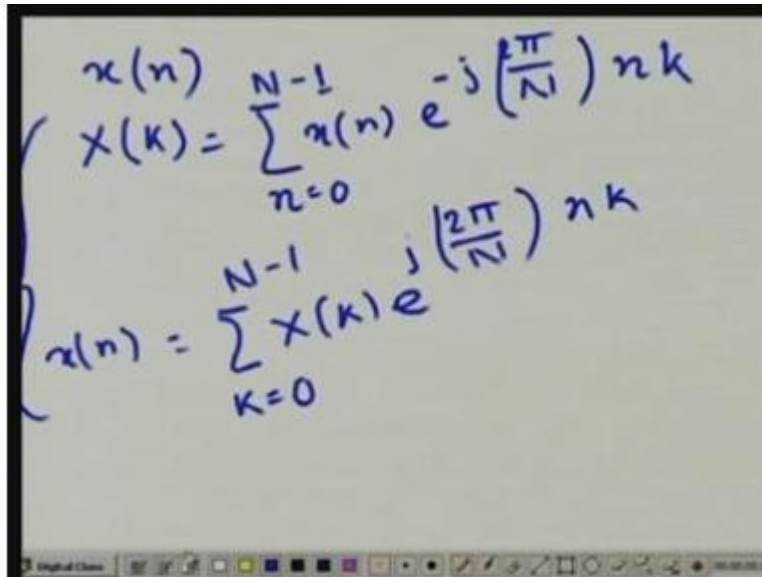 x(n)
X(K) = ∑_{n=0}^{N-1} x(n) e^{-j(2π/N)nk}
x(n) = ∑_{K=0}^{N-1} X(K) e^{j(2π/N)nk}
Digital Class